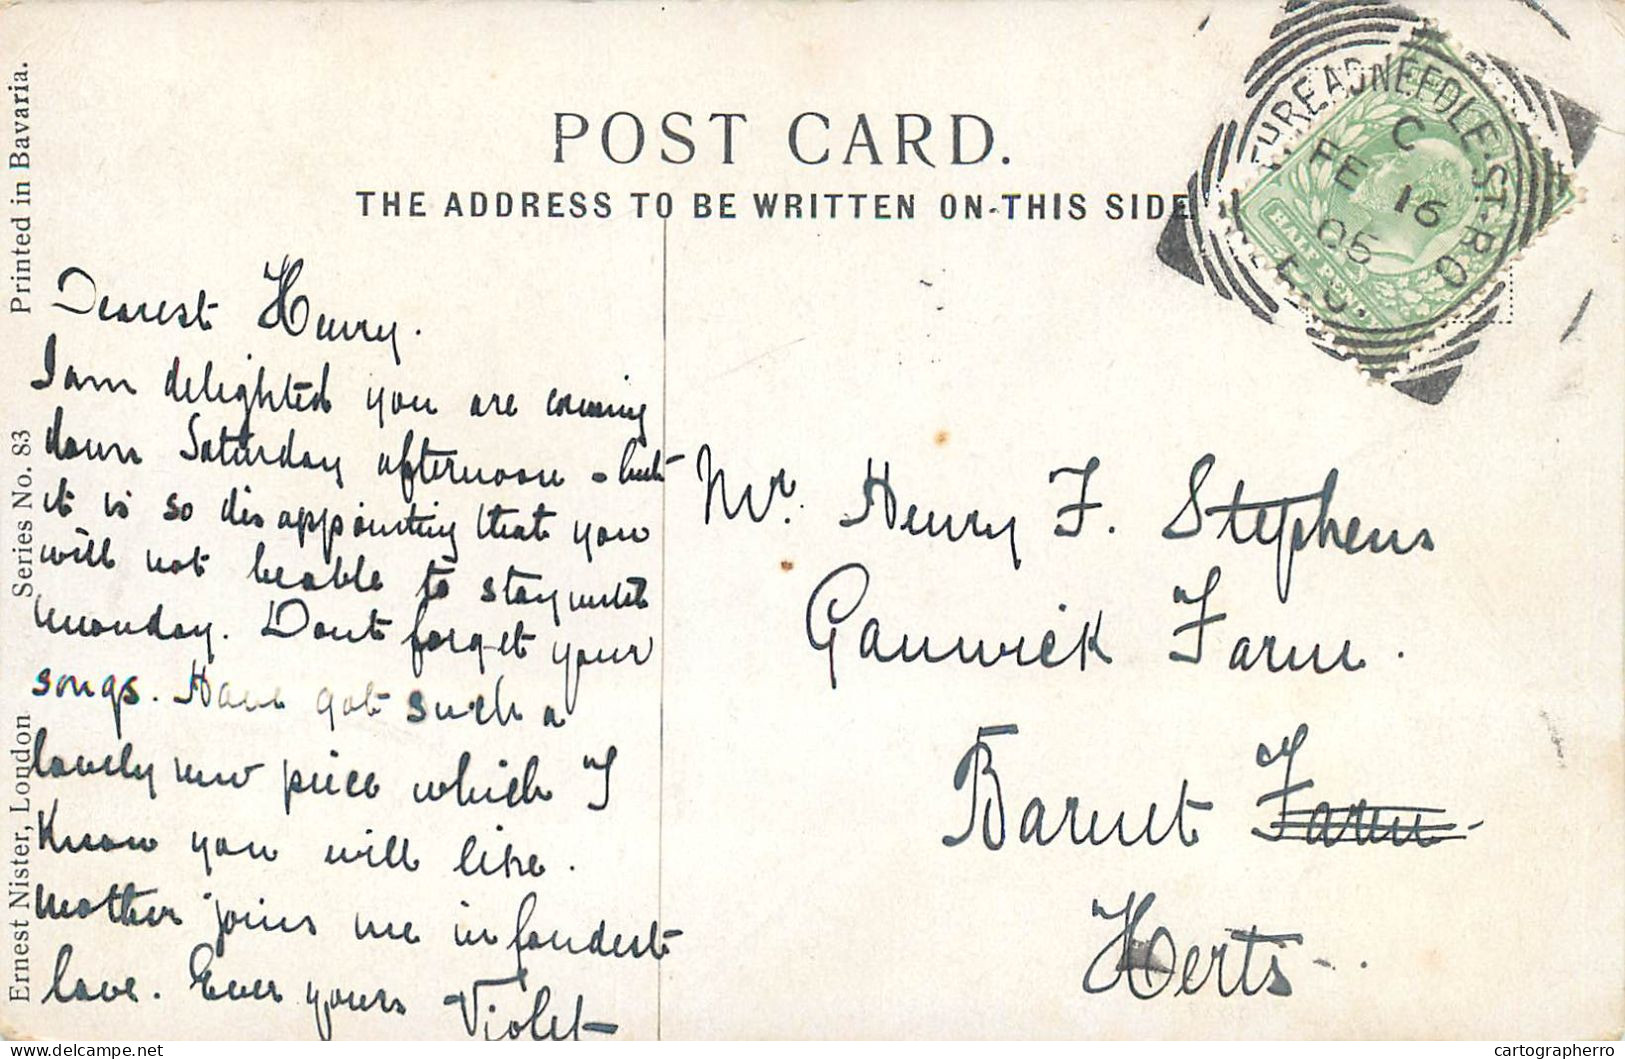 POST CARD.
THE ADDRESS TO BE WRITTEN ON THIS SIDE
THREADNEEDLE.ST.B.O
C
FE 16
05
E.C.
HALF PENNY
Printed in Bavaria.
Series No. 83
Ernest Nister, London
Dearest Henry.
I am delighted you are coming
down Saturday afternoon - but
it is so disappointing that you
will not be able to stay until
monday. Dont forget your
songs. Have got such a
lovely new piece which I
know you will like.
Mother joins me in fondest
love. Ever yours Violet
Mr. Henry F. Stephens
Ganwick Farm.
Barnet Farm
Herts.
cartographerro